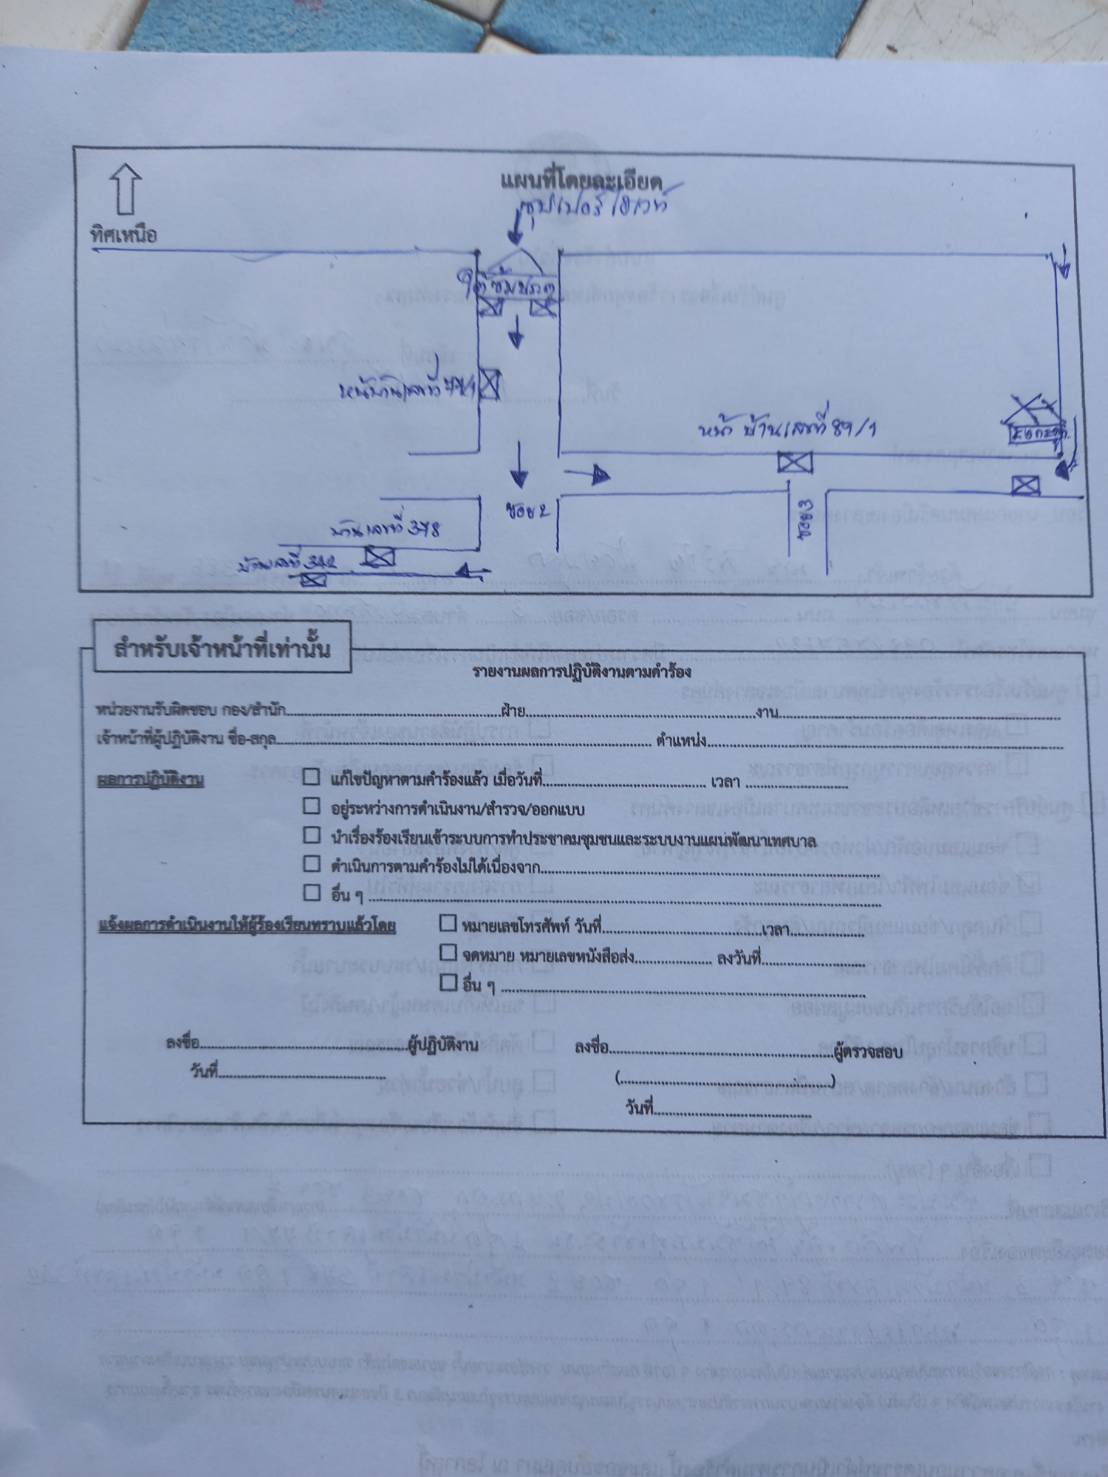 แผนที่โดยละเอียด
ซุปเปอร์ไฮเวท์
ทิศเหนือ
ใต้ซุ้มประตู
หน้าบ้านเลขที่
หน้า บ้านเลขที่ 89/1
ซอย 2
ซอย 3
บ้านเลขที่ 378
บ้านเลขที่ 342
สำหรับเจ้าหน้าที่เท่านั้น
รายงานผลการปฏิบัติงานตามคำร้อง
หน่วยงานรับผิดชอบ กอง/สำนัก..........ฝ่าย..........งาน..........
เจ้าหน้าที่ผู้ปฏิบัติงาน ชื่อ-สกุล.......... ตำแหน่ง..........
ผลการปฏิบัติงาน ☐ แก้ไขปัญหาตามคำร้องแล้ว เมื่อวันที่.......... เวลา ..........
☐ อยู่ระหว่างการดำเนินงาน/สำรวจ/ออกแบบ
☐ นำเรื่องร้องเรียนเข้าระบบการทำประชาคมชุมชนและระบบงานแผนพัฒนาเทศบาล
☐ ดำเนินการตามคำร้องไม่ได้เนื่องจาก..........
☐ อื่น ๆ ..........
แจ้งผลการดำเนินงานให้ผู้ร้องเรียนทราบแล้วโดย ☐ หมายเลขโทรศัพท์ วันที่..........เวลา..........
☐ จดหมาย หมายเลขหนังสือส่ง.......... ลงวันที่..........
☐ อื่น ๆ ..........
ลงชื่อ..........ผู้ปฏิบัติงาน ลงชื่อ..........ผู้ตรวจสอบ
วันที่.......... (..........)
วันที่..........